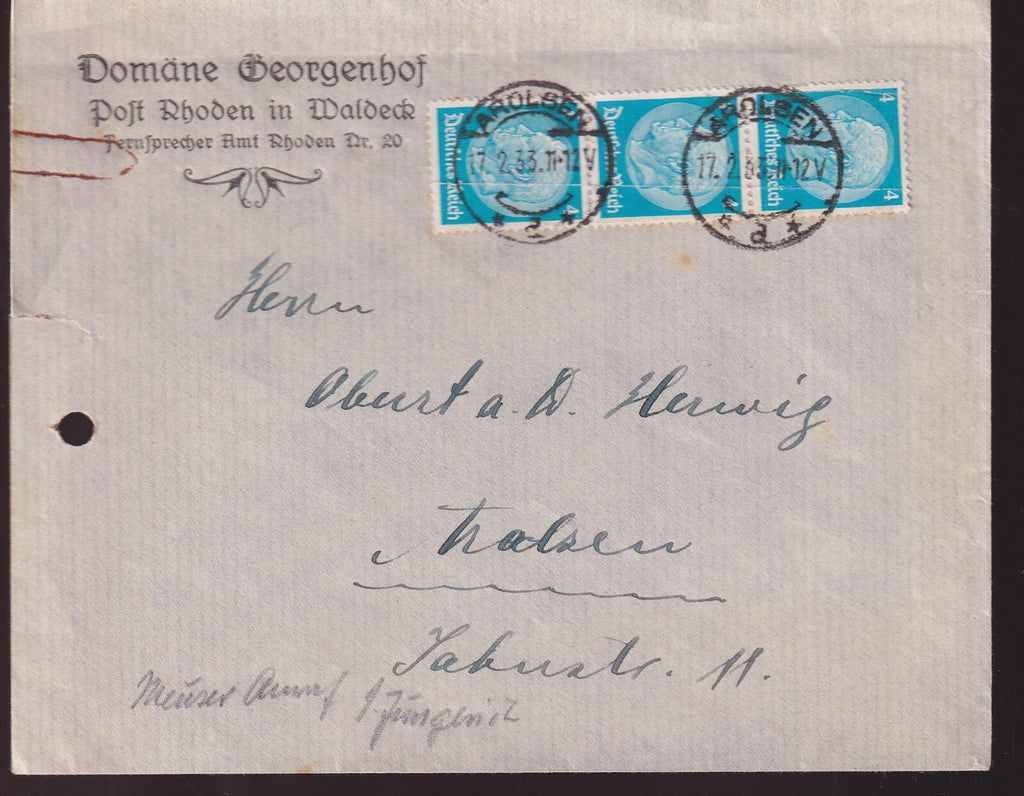 Domäne Georgenhof
Post Rhoden in Waldeck
Fernsprecher Amt Rhoden Nr. 20
Deutsches Reich
4
Deutsches Reich
Deutsches Reich
4
4
AROLSEN
17. 2. 33. 11-12 V
* a *
AROLSEN
17. 2. 33. 11-12 V
* a *
Herrn
Oberst a. D. Herwig
Arolsen
11.